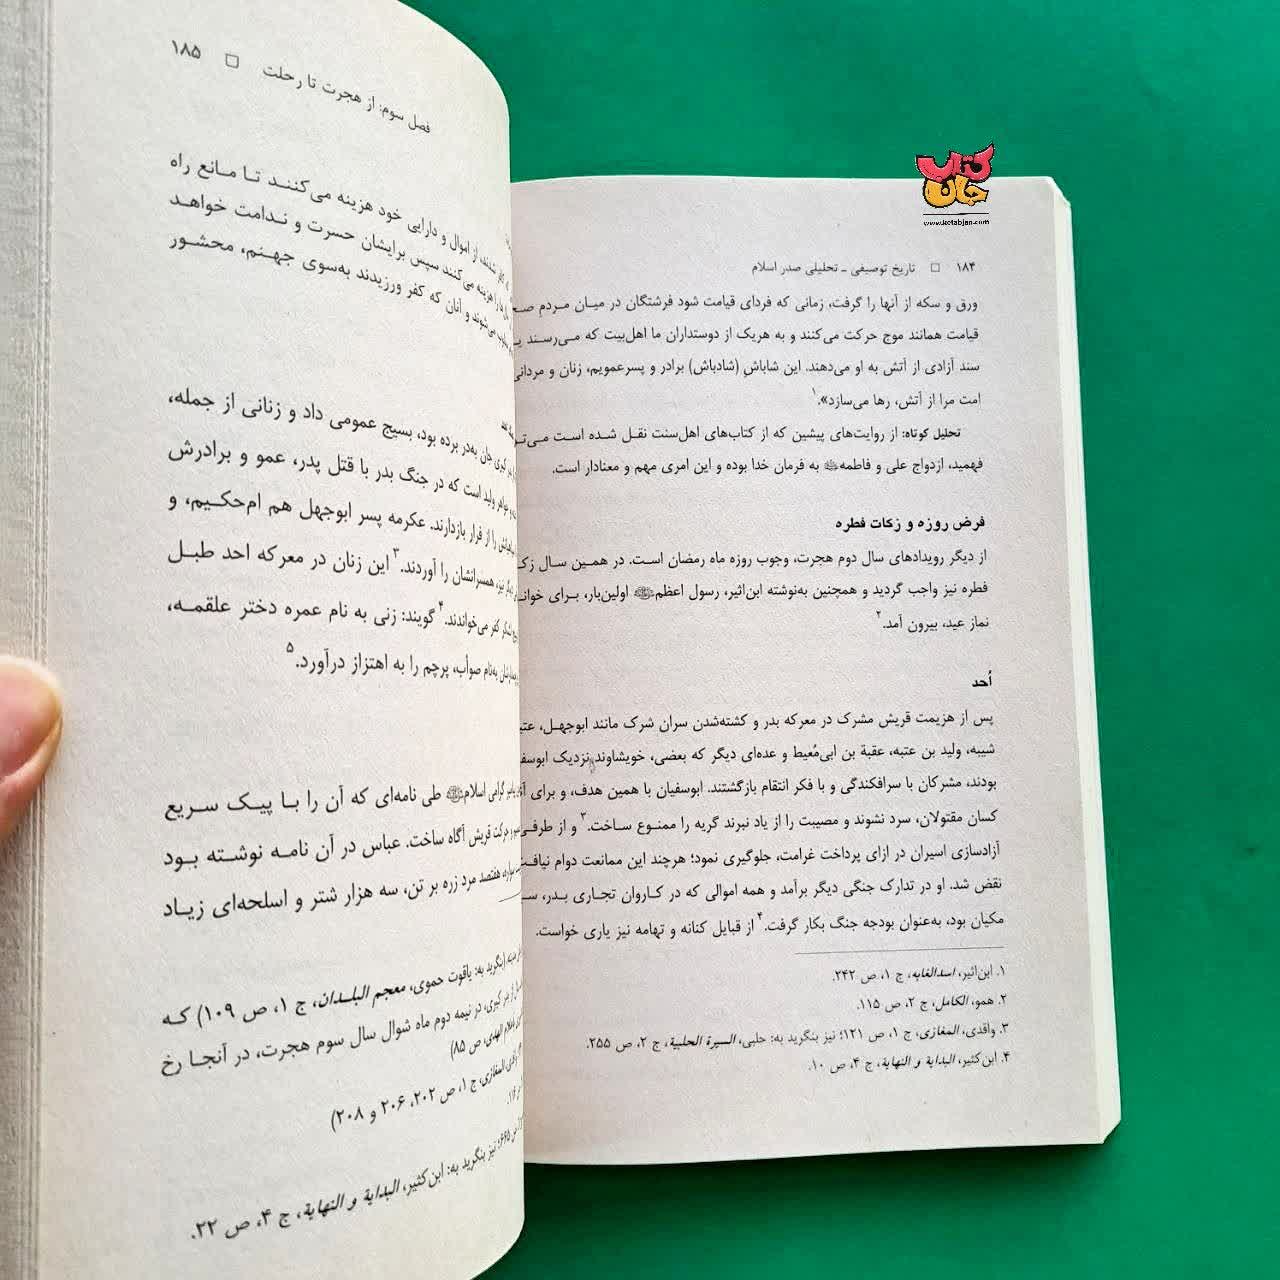 کتاب جان
www.ketabjan.com
۱۸۴ □ تاریخ توصیفی ـ تحلیلی صدر اسلام
ورق و سکه از آنها را گرفت، زمانی که فردای قیامت شود فرشتگان در میان مردم
قیامت همانند موج حرکت می‌کنند و به هریک از دوستداران ما اهل‌بیت که می‌رسند
سند آزادی از آتش به او می‌دهند. این شاباشِ (شادباش) برادر و پسرعمویم، زنان و مردانی
امت مرا از آتش، رها می‌سازد».۱
تحلیل کوتاه: از روایت‌های پیشین که از کتاب‌های اهل‌سنت نقل شده است
فهمید، ازدواج علی و فاطمه به فرمان خدا بوده و این امری مهم و معنادار است.
فرض روزه و زکات فطره
از دیگر رویدادهای سال دوم هجرت، وجوب روزه ماه رمضان است. در همین سال
فطره نیز واجب گردید و همچنین به‌نوشته ابن‌اثیر، رسول اعظمﷺ اولین‌بار، برای
نماز عید، بیرون آمد.۲
اُحد
پس از هزیمت قریش مشرک در معرکه بدر و کشته‌شدن سران شرک مانند ابوجهل،
شیبه، ولید بن عتبه، عقبة بن ابی‌مُعیط و عده‌ای دیگر که بعضی، خویشاوند نزدیک
بودند، مشرکان با سرافکندگی و با فکر انتقام بازگشتند. ابوسفیان با همین هدف، و برای
کسان مقتولان، سرد نشوند و مصیبت را از یاد نبرند گریه را ممنوع ساخت.۳ و از طرفی
آزادسازی اسیران در ازای پرداخت غرامت، جلوگیری نمود؛ هرچند این ممانعت دوام
نقض شد. او در تدارک جنگی دیگر برآمد و همه اموالی که در کاروان تجاری بدر،
مکیان بود، به‌عنوان بودجه جنگ بکار گرفت.۴ از قبایل کنانه و تهامه نیز یاری خواست.
۱. ابن‌اثیر، اسدالغابه، ج ۱، ص ۲۴۲.
۲. همو، الکامل، ج ۲، ص ۱۱۵.
۳. واقدی، المغازی، ج ۱، ص ۱۲۱؛ نیز بنگرید به: حلبی، السیرة الحلبیة، ج ۲، ص ۲۵۵.
۴. ابن‌کثیر، البدایة و النهایة، ج ۴، ص ۱۰.
فصل سوم: از هجرت تا رحلت □ ۱۸۵
از اموال و دارایی خود هزینه می‌کنند تا مانع راه
را هزینه می‌کنند سپس برایشان حسرت و ندامت خواهد
می‌شوند و آنان که کفر ورزیدند به‌سوی جهنم، محشور
جان به‌در برده بود، بسیج عمومی داد و زنانی از جمله،
ولید است که در جنگ بدر با قتل پدر، عمو و برادرش
را از فرار بازدارند. عکرمه پسر ابوجهل هم ام‌حکیم، و
همسرانشان را آوردند.۳ این زنان در معرکه احد طبل
کفر می‌خواندند.۴ گویند: زنی به نام عمره دختر علقمه،
به‌نام صوأب، پرچم را به اهتزاز درآورد.۵
گرامی اسلامﷺ طی نامه‌ای که آن را با پیک سریع
و حرکت قریش آگاه ساخت. عباس در آن نامه نوشته بود
هفتصد مرد زره بر تن، سه هزار شتر و اسلحه‌ای زیاد
(بنگرید به: یاقوت حموی، معجم البلدان، ج ۱، ص ۱۰۹) که
در نیمه دوم ماه شوال سال سوم هجرت، در آنجا رخ
ص ۸۵)
واقدی، المغازی، ج ۱، ص ۲۰۲، ۲۰۶ و ۲۰۸)
نیز بنگرید به: ابن‌کثیر، البدایة و النهایة، ج ۴، ص ۲۲.